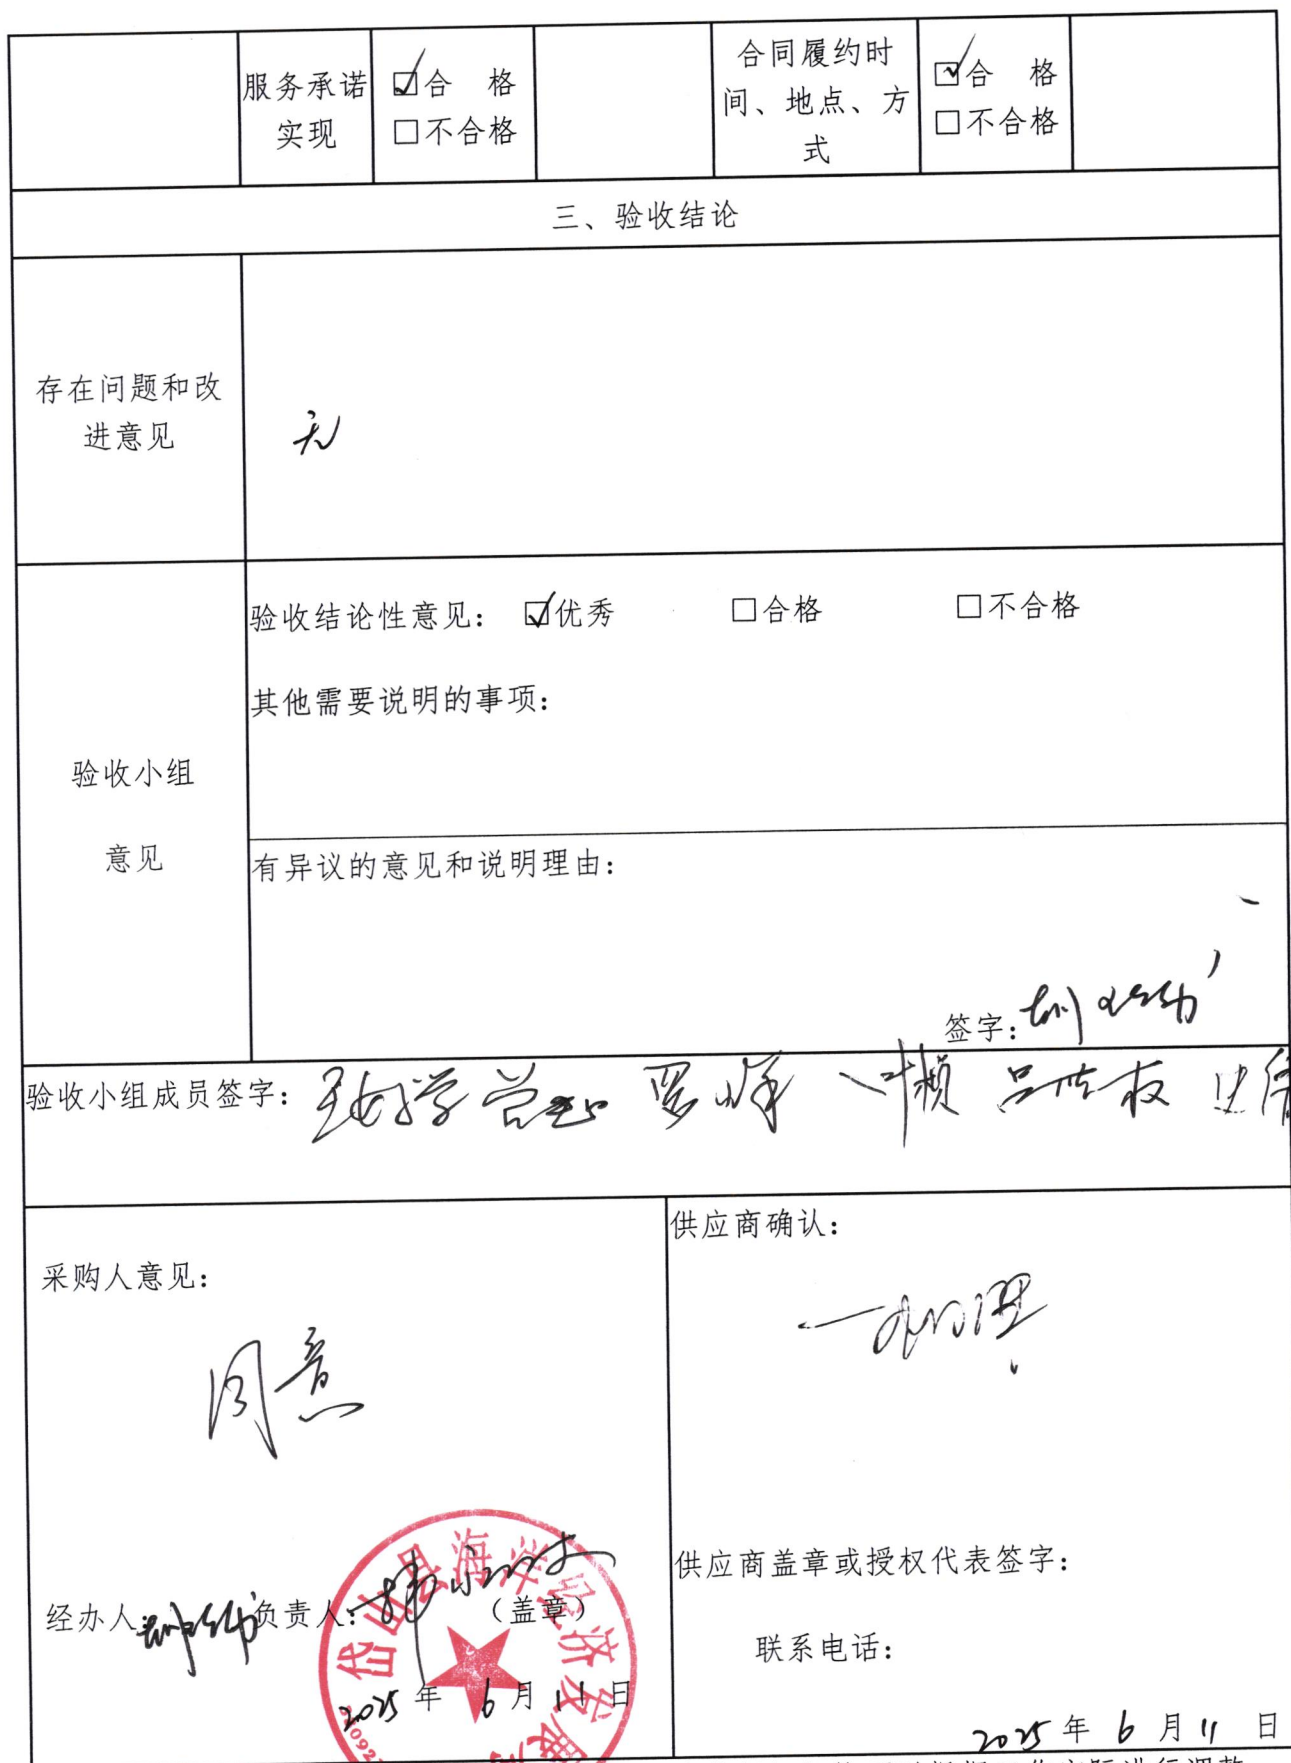 服务承诺
实现
☑合 格
□不合格
合同履约时
间、地点、方
式
☑合 格
□不合格
三、验收结论
存在问题和改
进意见
无
验收小组
意见
验收结论性意见： ☑优秀 □合格 □不合格
其他需要说明的事项：
有异议的意见和说明理由：
签字：
验收小组成员签字：
采购人意见：
同意
经办人： 负责人： （盖章）
岱山县海洋经济发展
2025年 6月11日
供应商确认：
供应商盖章或授权代表签字：
联系电话：
2025年 6月11日